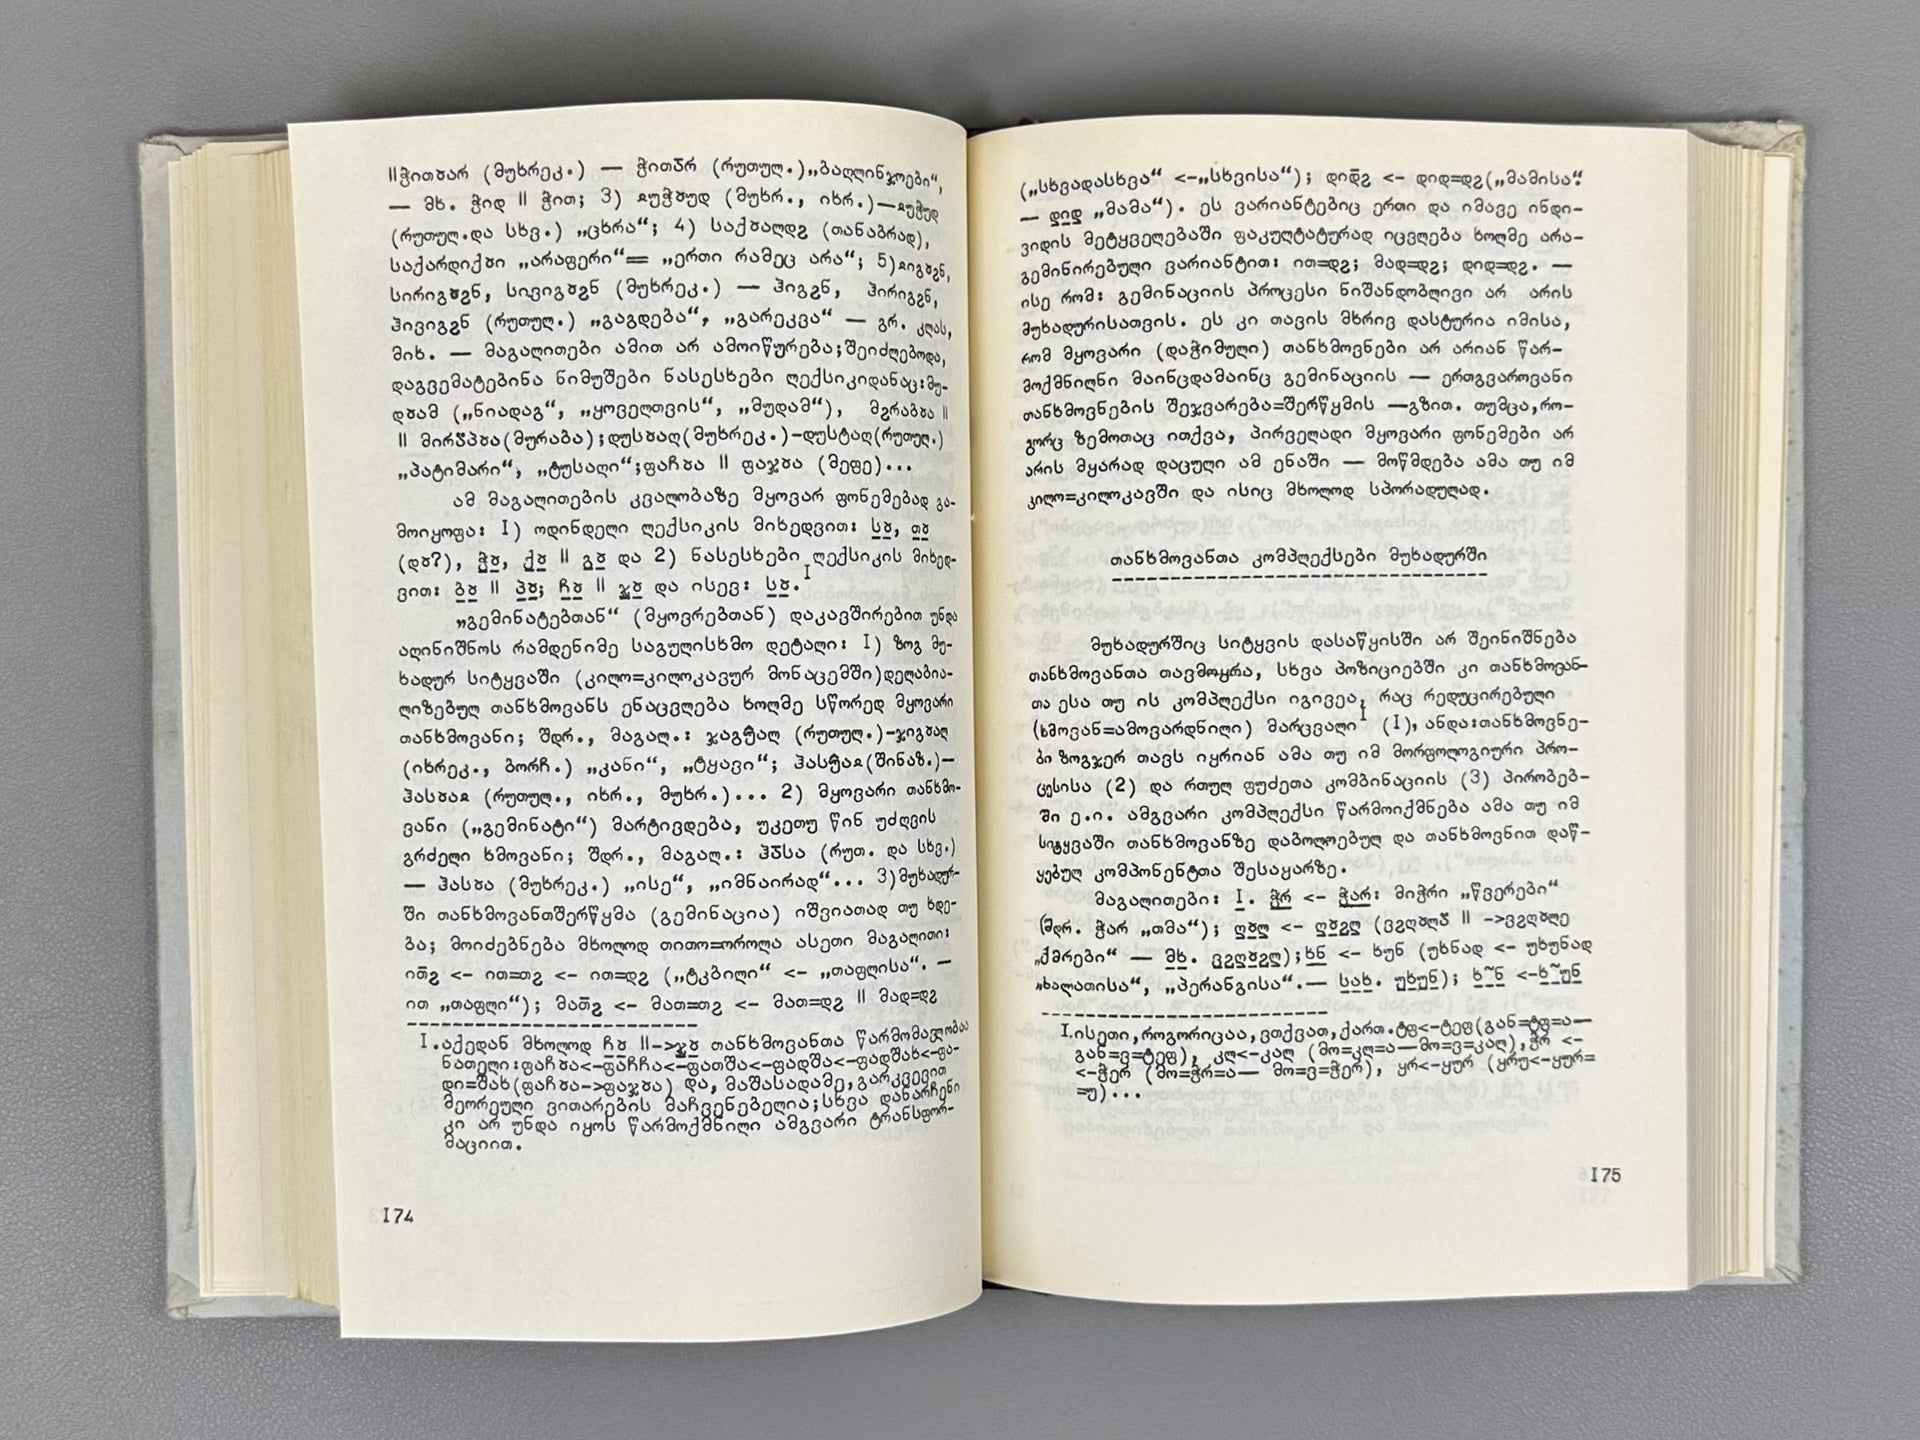 ||ჭითჷარ (მუხრეკ.) — ჭითჷ̄რ (რუთულ.)„ბადლინჯოები“,
— მხ. ჭიდ || ჭით; 3) (მუხრ., იხრ.)—
(რუთულ.და სხვ.) „ცხრა“; 4) (თანაბრად),
„არაფერი“= „ერთი რამეც არა“; 5)
(მუხრეკ.) —
(რუთულ.) „გაგდება“, „გარეკვა“ — გრ. კლას,
მიხ. — მაგალითები ამით არ ამოიწურება;შეიძლებოდა,
დაგვემატებინა ნიმუშები ნასესხები ლექსიკიდანაც:მუ-
(„ნიადაგ“, „ყოველთვის“, „მუდამ“),
(მურაბა); (მუხრეკ.)-დუსტაღ(რუთულ.)
„პატიმარი“, „ტუსაღი“; (მეფე)...
ამ მაგალითების კვალობაზე მყოვარ ფონემებად გა-
მოიყოფა: I) ოდინდელი ლექსიკის მიხედვით:
და 2) ნასესხები ლექსიკის მიხედ-
ვით: და ისევ: I
„გემინატებთან“ (მყოვრებთან) დაკავშირებით უნდა
აღინიშნოს რამდენიმე საგულისხმო დეტალი: I) ზოგ მუ-
ხადურ სიტყვაში (კილო=კილოკავურ მონაცემში)დელაბია-
ლიზებულ თანხმოვანს ენაცვლება ხოლმე სწორედ მყოვარი
თანხმოვანი; შდრ., მაგალ.: (რუთულ.)-
(იხრეკ., ბორჩ.) „კანი“, „ტყავი“; (შინაზ.)—
(რუთულ., იხრ., მუხრ.)... 2) მყოვარი თანხმო-
ვანი („გემინატი“) მარტივდება, უკეთუ წინ უძღვის
გრძელი ხმოვანი; შდრ., მაგალ.: (რუთ. და სხვ.)
— (მუხრეკ.) „ისე“, „იმნაირად“... 3)მუხადურ-
ში თანხმოვანთშერწყმა (გემინაცია) იშვიათად თუ ხდე-
ბა; მოიძებნება მხოლოდ თითო=ოროლა ასეთი მაგალითი:
ით̄ჷ <- ით=თჷ <- ით=დჷ („ტკბილი“ <- „თაფლისა“. —
ით „თაფლი“); მათ̄ჷ <- მათ=თჷ <- მათ=დჷ || მად=დჷ
I.აქედან მხოლოდ თანხმოვანთა წარმომავლობაა
ნათელი:
და, მაშასადამე,გარკვევით
მეორეული ვითარების მაჩვენებელია;სხვა დანარჩენი
კი არ უნდა იყოს წარმოქმნილი ამგვარი ტრანსფორ-
მაციით.
I74
(„სხვადასხვა“ <-„სხვისა“); დიდ̄ჷ <- დიდ=დჷ(„მამისა“.
— დიდ „მამა“). ეს ვარიანტებიც ერთი და იმავე ინდი-
ვიდის მეტყველებაში ფაკულტატურად იცვლება ხოლმე არა-
გემინირებული ვარიანტით: ით=დჷ; მად=დჷ; დიდ=დჷ. —
ისე რომ: გემინაციის პროცესი ნიშანდობლივი არ არის
მუხადურისათვის. ეს კი თავის მხრივ დასტურია იმისა,
რომ მყოვარი (დაჭიმული) თანხმოვნები არ არიან წარ-
მოქმნილნი მაინცდამაინც გემინაციის — ერთგვაროვანი
თანხმოვნების შეჯვარება=შერწყმის —გზით. თუმცა,რო-
გორც ზემოთაც ითქვა, პირველადი მყოვარი ფონემები არ
არის მყარად დაცული ამ ენაში — მოწმდება ამა თუ იმ
კილო=კილოკავში და ისიც მხოლოდ სპორადულად.
თანხმოვანთა კომპლექსები მუხადურში
მუხადურშიც სიტყვის დასაწყისში არ შეინიშნება
თანხმოვანთა თავმოყრა, სხვა პოზიციებში კი თანხმოვან-
თა ესა თუ ის კომპლექსი იგივეა, რაც რედუცირებული
(ხმოვან=ამოვარდნილი) მარცვალი I (I), ანდა:თანხმოვნე-
ბი ზოგჯერ თავს იყრიან ამა თუ იმ მორფოლოგიური პრო-
ცესისა (2) და რთულ ფუძეთა კომბინაციის (3) პირობებ-
ში ე.ი. ამგვარი კომპლექსი წარმოიქმნება ამა თუ იმ
სიტყვაში თანხმოვანზე დაბოლოებულ და თანხმოვნით დაწ-
ყებულ კომპონენტთა შესაყარზე.
მაგალითები: I. ჭრ <- ჭარ: მიჭრი „წვერები“
(შდრ. ჭარ „თმა“);
„ქმრები“ — მხ. ხნ <- ხუნ (უხნად <- უხუნად
„ხალათისა“, „პერანგისა“.— სახ. უხუნ); ხ~ნ <-ხ~უნ
I.ისეთი,როგორიცაა,ვთქვათ,ქართ.ტფ<-ტეფ(გან=ტფ=ა—
გან=ვ=ტეფ), კლ<-კალ (მო=კლ=ა—მო=ვ=კალ),ჭრ <-
<-ჭერ (მო=ჭრ=ა— მო=ვ=ჭერ), ყრ<-ყურ (ყრუ<-ყურ=
=უ)...
I75